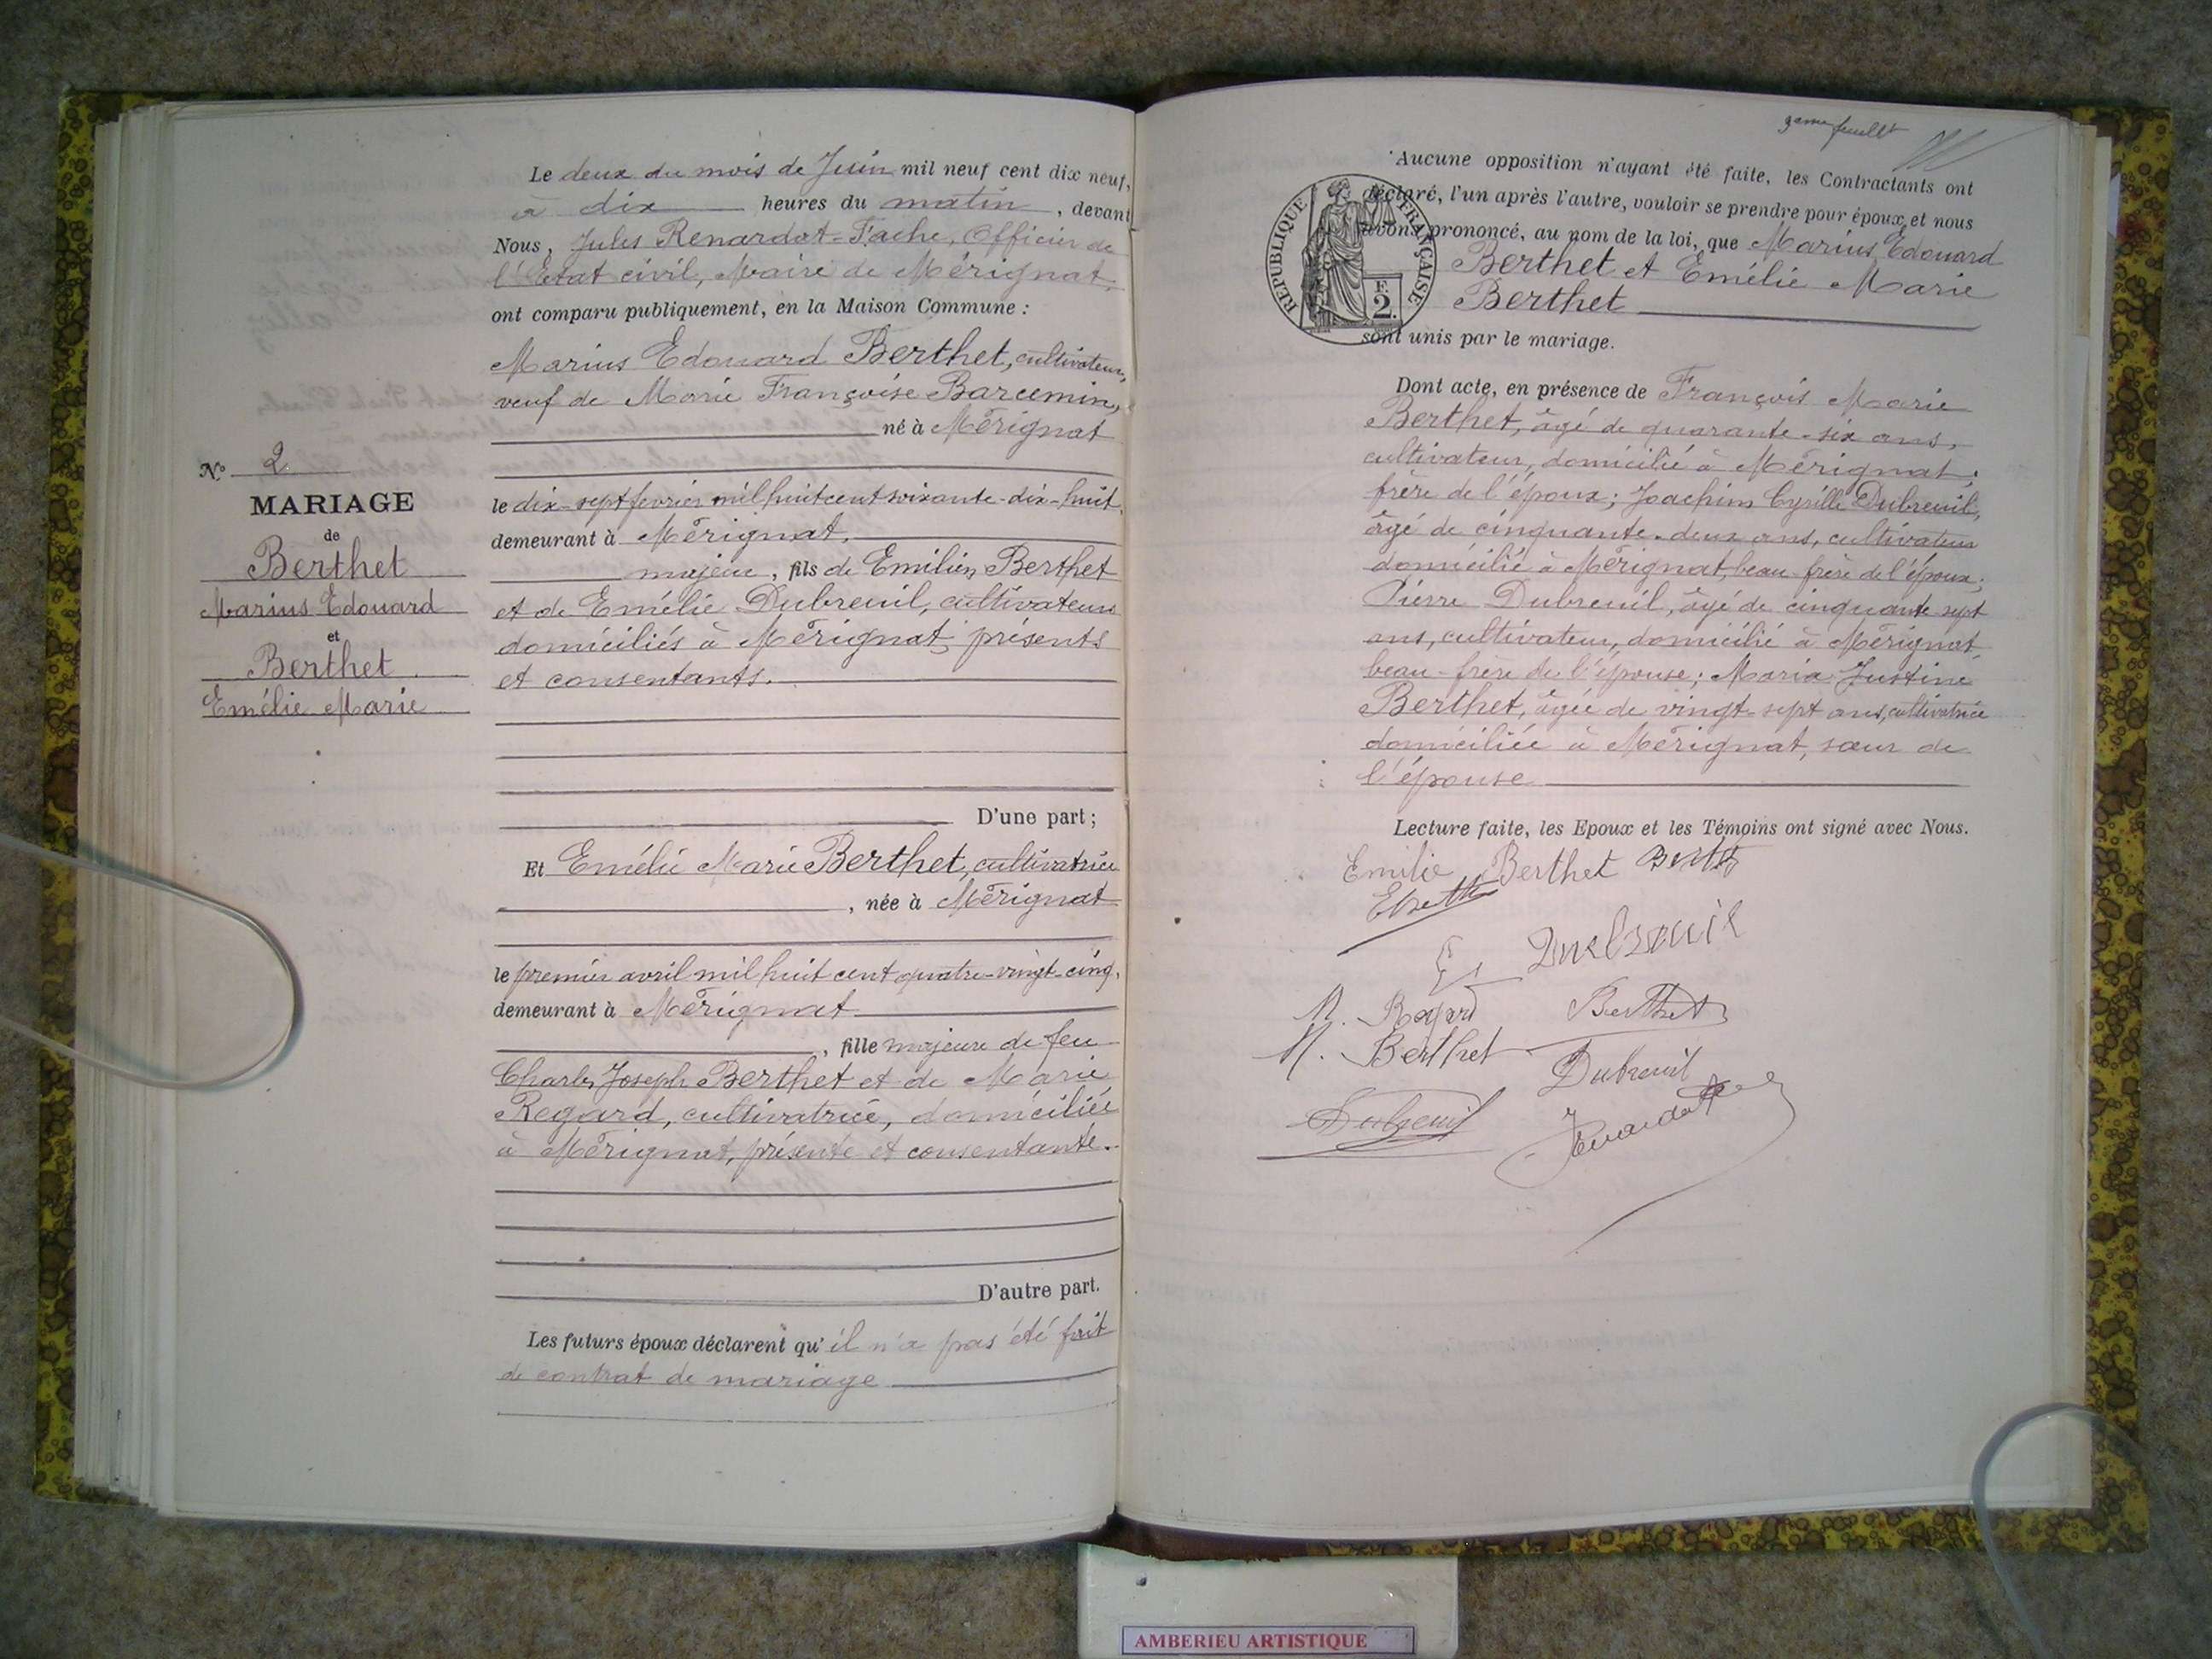 Le deux du mois de Juin mil neuf cent dix neuf,
à dix heures du matin, devant
Nous, Jules Renardat-Fache, Officier de
l'État civil, Maire de Mérignat,
ont comparu publiquement, en la Maison Commune :
Marius Edouard Berthet, cultivateur,
veuf de Marie Françoise Barcemin,
né à Mérignat
le dix-sept fevrier mil huit cent soixante-dix-huit,
demeurant à Mérignat,
majeur, fils de Emilien Berthet
et de Emélie Dubreuil, cultivateurs
domiciliés à Mérignat, présents
et consentants.
D'une part ;
Et Emélie Marie Berthet, cultivatrice
, née à Mérignat
le premier avril mil huit cent quatre-vingt-cinq,
demeurant à Mérignat
, fille majeure de feu
Charles Joseph Berthet et de Marie
Regard, cultivatrice, domiciliée
à Mérignat, présente et consentante.
D'autre part.
Les futurs époux déclarent qu'il n'a pas été fait
de contrat de mariage
N° 2
MARIAGE
de
Berthet
Marius Edouard
et
Berthet
Emélie Marie
feuillet
Aucune opposition n'ayant été faite, les Contractants ont
déclaré, l'un après l'autre, vouloir se prendre pour époux, et nous
avons prononcé, au nom de la loi, que Marius Edouard
Berthet et Emélie Marie
Berthet
sont unis par le mariage.
RÉPUBLIQUE FRANÇAISE
F.
2.
Dont acte, en présence de François Marie
Berthet, âgé de quarante-six ans,
cultivateur, domicilié à Mérignat,
frère de l'époux ; Joachim Cyrille Dubreuil,
âgé de cinquante-deux ans, cultivateur
domicilié à Mérignat, beau-frère de l'époux ;
Pierre Dubreuil, âgé de cinquante sept
ans, cultivateur, domicilié à Mérignat,
beau-frère de l'épouse ; Maria Justine
Berthet, âgée de vingt-sept ans, cultivatrice
domiciliée à Mérignat, sœur de
l'épouse
Lecture faite, les Epoux et les Témoins ont signé avec Nous.
Emilie Berthet
M. Regard Berthet
M. Berthet
Dubreuil
AMBERIEU ARTISTIQUE